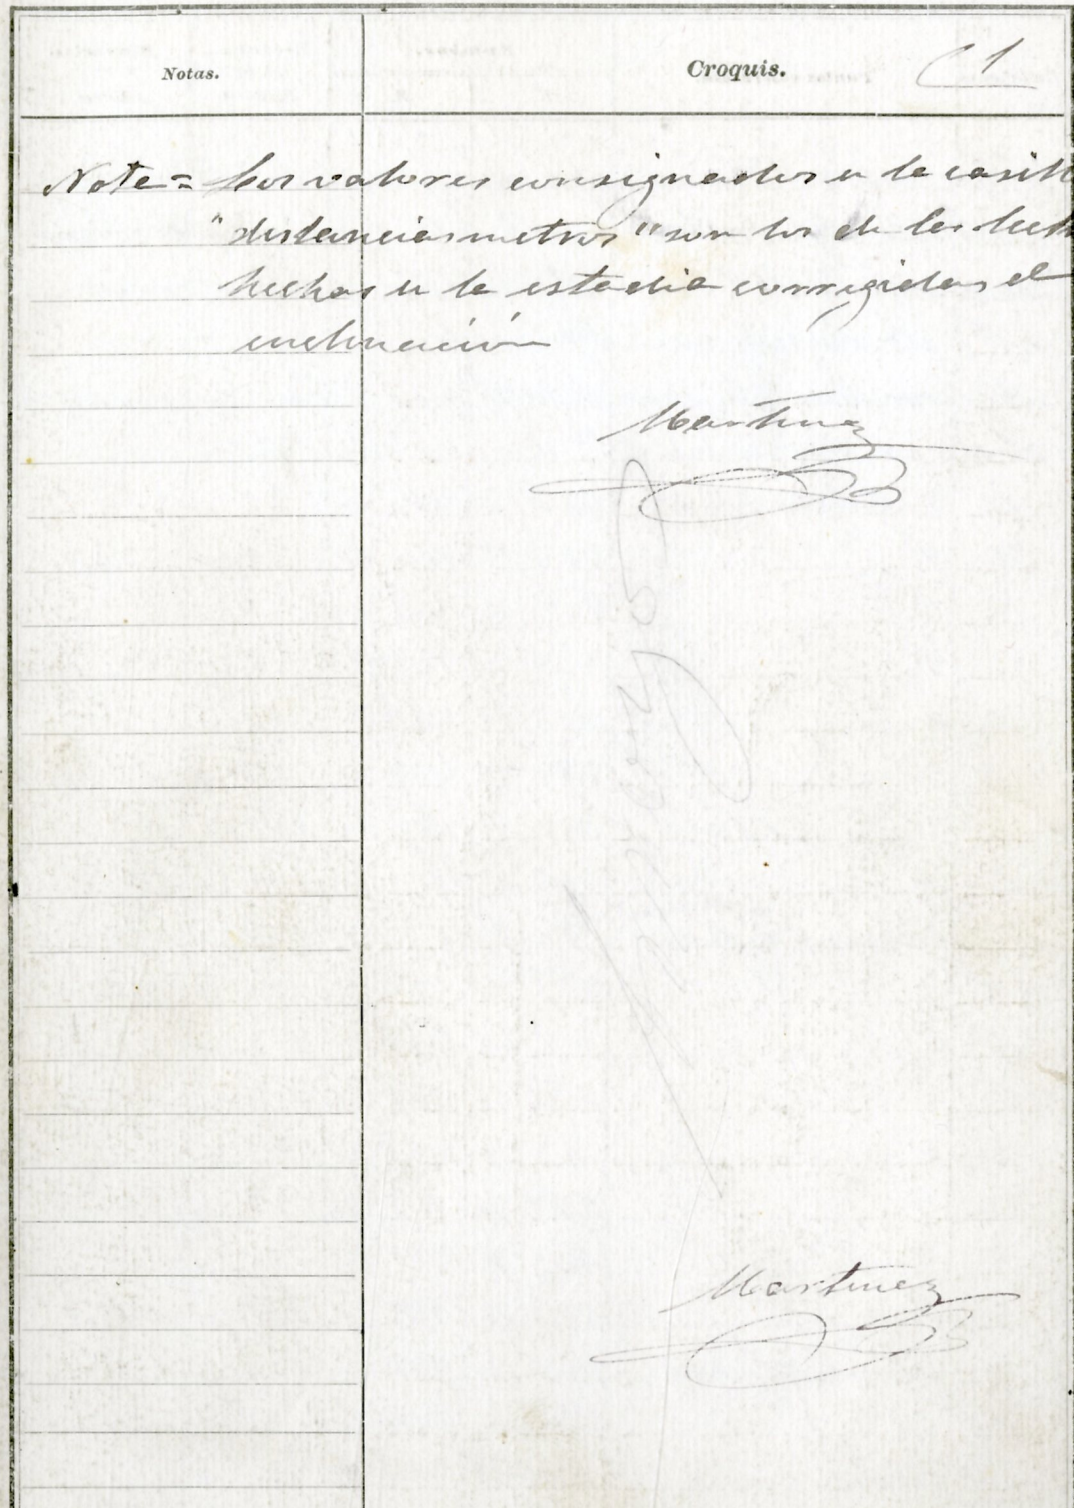 Notas.
Croquis.
1
Nota = Los valores consignados en la casill
"distancias metros" son los de las lect
hechas en la estadia corregidas d
inclinación
Martinez
Martinez